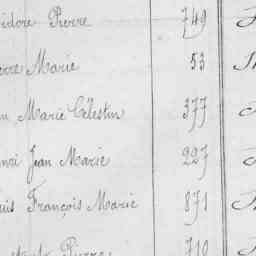 Pierre 749
Marie 53
Marie Célestin 377
Jean Marie 227
François Marie 871
Pierre 710